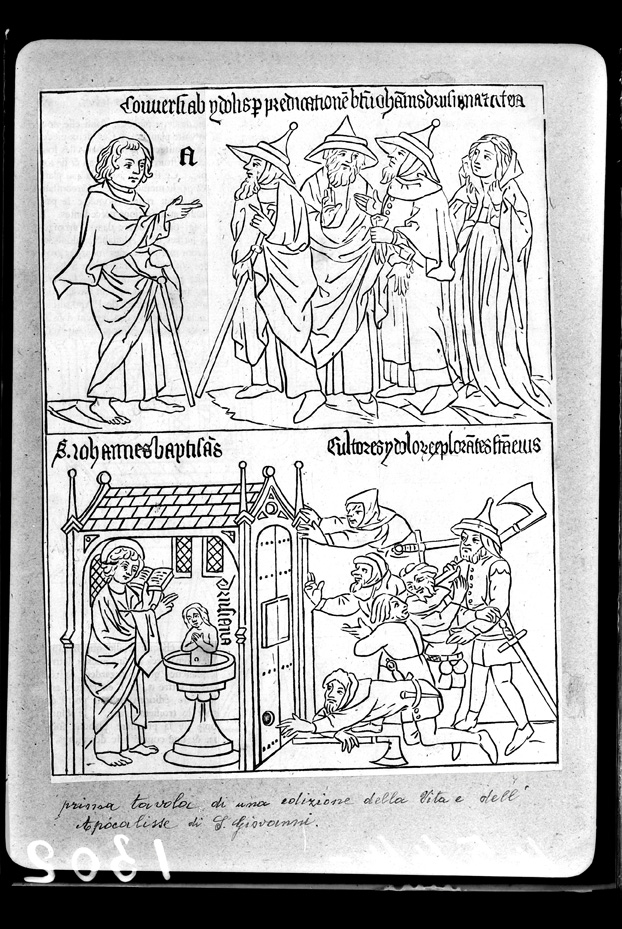 Conversi ab ydolis p̱ predicationē bti iohānis drusiana et cetera
A
S. Iohannes baptisās
Cultores ydolor̄ explorātes fc̄a eius
drusiana
prima tavola, di una edizione della Vita e dell'
Apocalisse di S. Giovanni.
1302